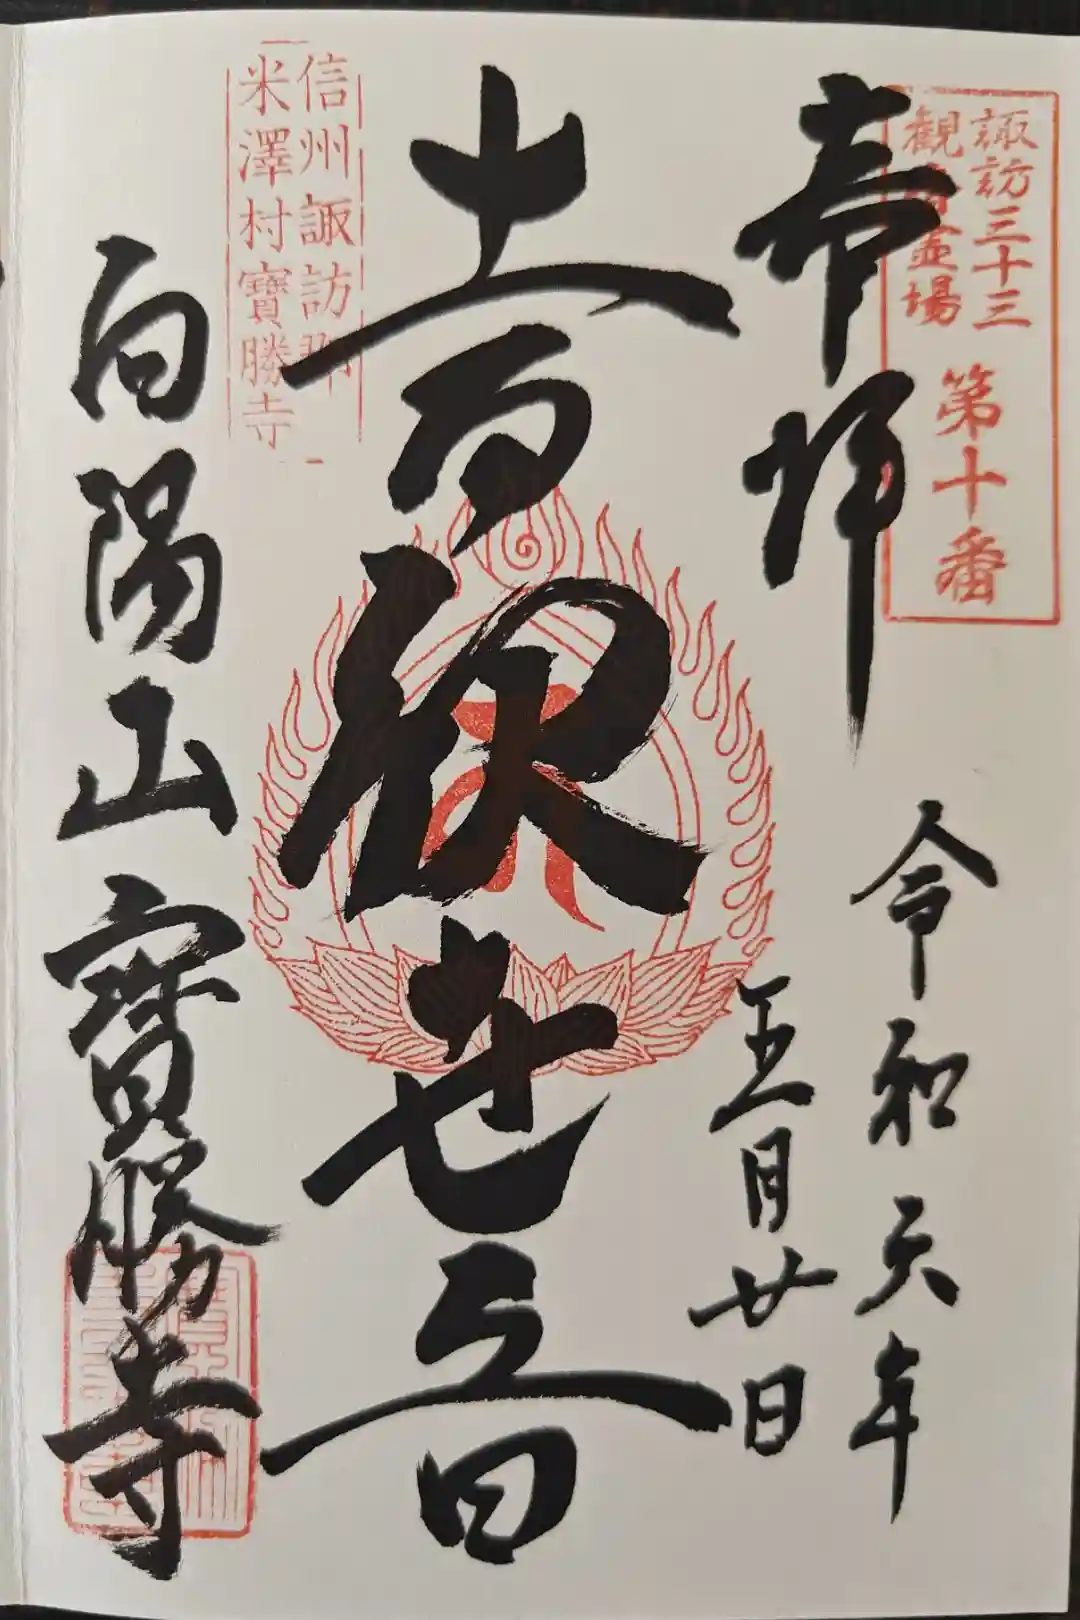 諏訪三十三
観音霊場
第十番
奉拝
令和六年
五月廿日
十一面観世音
信州諏訪郡
米澤村寶勝寺
向陽山寶勝寺